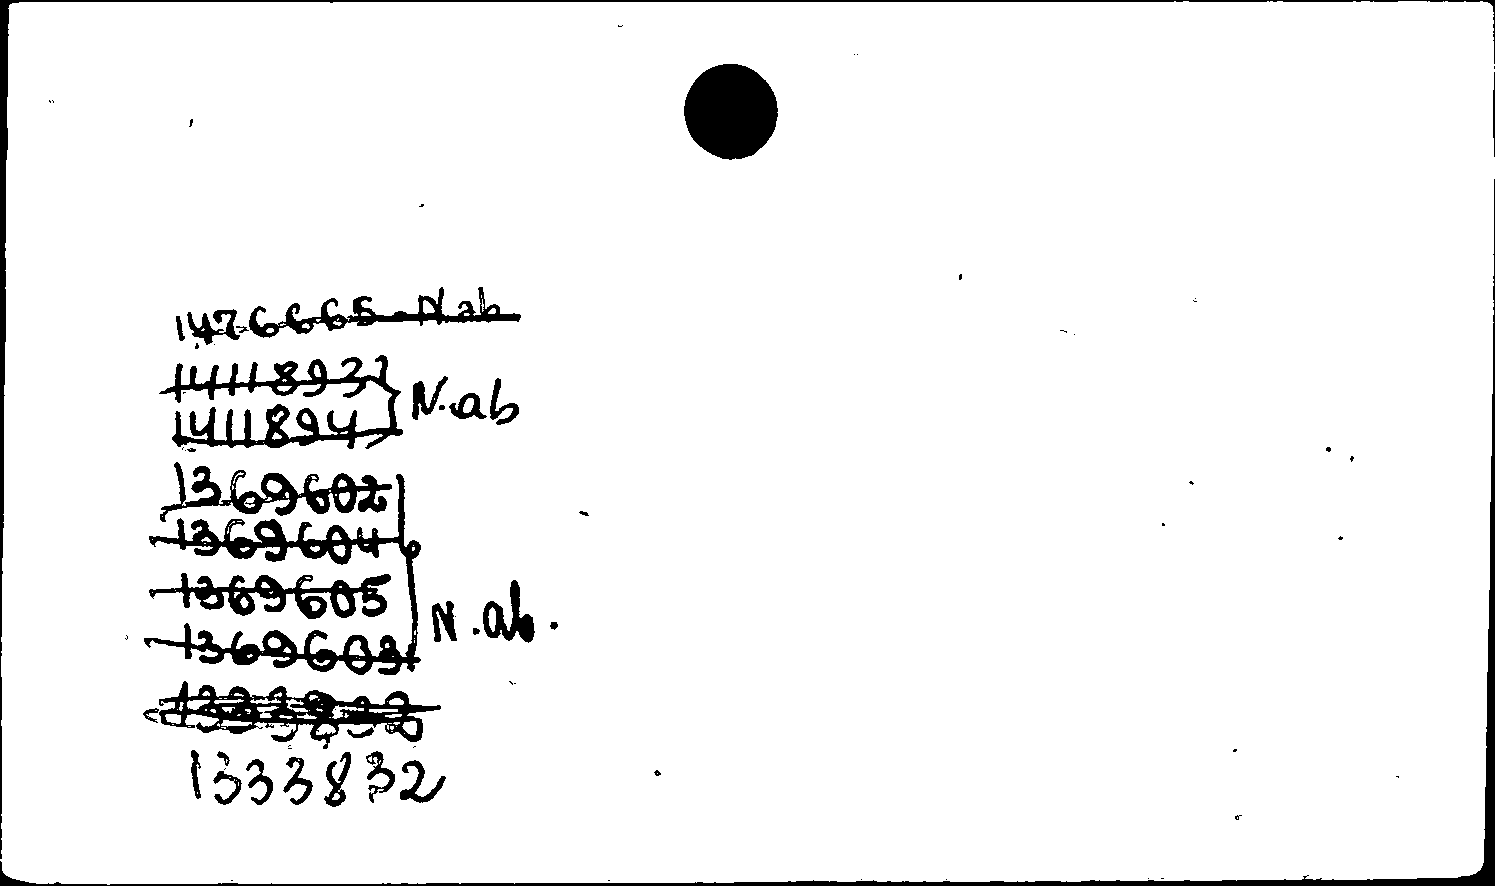 1476665 - N ab
1411893
1411894 } N.ab
1369602
1369604
1369605
1369603 N.ab.
1333832
1333832